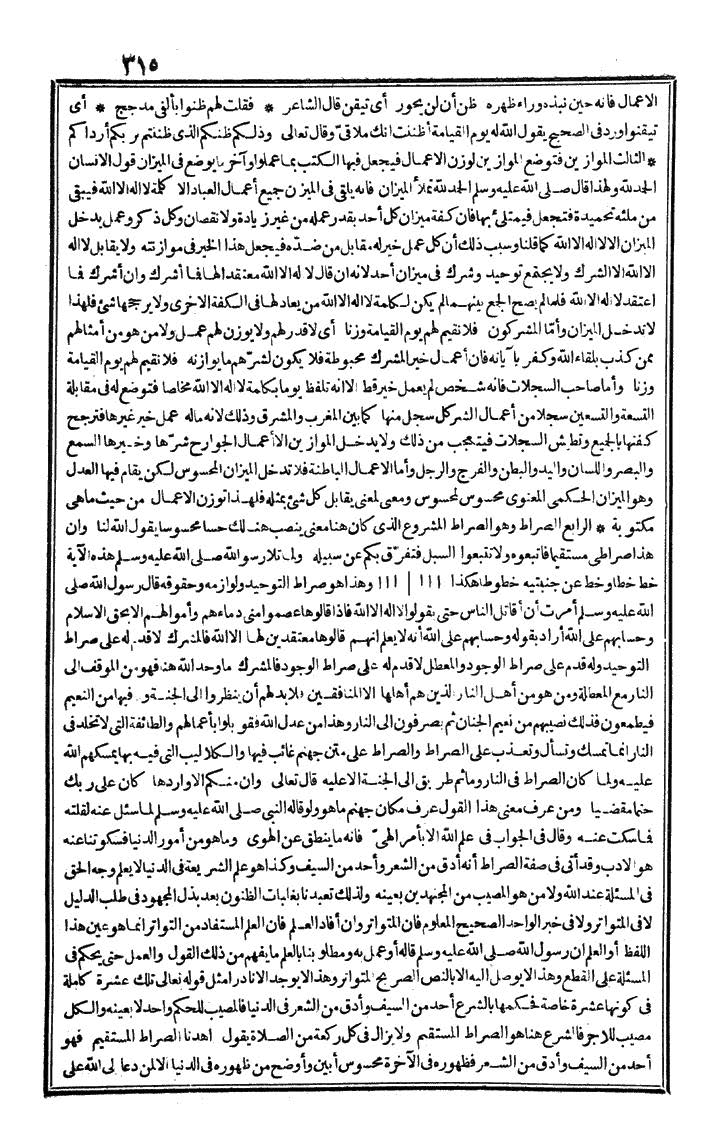 ٣١٥
الاعمال فانه حين نبذه وراء ظهره ظن أن لن يحور أى تيقن قال الشاعر * فقلت لهم ظنوا بألفى مدجج * أى
تيقنوا ورد فى الصحيح يقول الله له يوم القيامة أظننت انك ملاقىّ وقال تعالى وذلكم ظنكم الذى ظننتم بربكم أرداكم
* الثالث الموازين فتوضع الموازين لوزن الاعمال فيجعل فيها الكتب بما عملوا وآخر ما يوضع فى الميزان قول الانسان
الحمد لله ولهذا قال صلى الله عليه وسلم الحمد لله تملأ الميزان فانه يلقى فى الميزن جميع أعمال العباد الا كلمة لا اله الا الله فيبقى
من ملئه تحميدة فتجعل فيمتلئ بها فان كفة ميزان كل أحد بقدر عمله من غير زيادة ولا نقصان وكل ذكر وعمل يدخل
الميزان الا لا اله الا الله كما قلنا وسبب ذلك أن كل عمل خير له مقابل من ضده فيجعل هذا الخير فى موازنته ولا يقابل لا اله
الا الله الا الشرك ولا يجتمع توحيد وشرك فى ميزان أحد لانه ان قال لا اله الا الله معتقدا لها فما أشرك وان أشرك فما
اعتقد لا اله الا الله فلما لم يصح الجمع بينهما لم يكن لكلمة لا اله الا الله من يعادلها فى الكفة الاخرى ولا يرجحها شئ فلهذا
لا تدخل الميزان وأما المشركون فلا نقيم لهم يوم القيامة وزنا أى لا قدر لهم ولا يوزن لهم عمل ولا من هو من أمثالهم
ممن كذب بلقاء الله وكفر بآياته فان أعمال خير المشرك محبوطة فلا يكون لشرهم ما يوازنه فلا نقيم لهم يوم القيامة
وزنا وأما صاحب السجلات فانه شخص لم يعمل خيرا قط الا انه تلفظ يوما بكلمة لا اله الا الله مخلصا فتوضع له فى مقابلة
التسعة والتسعين سجلا من أعمال الشر كل سجل منها كما بين المغرب والمشرق وذلك لانه ماله عمل خير غيرها فترجح
كفتها بالجميع وتطيش السجلات فيتعجب من ذلك ولا يدخل الموازين الا أعمال الجوارح شرها وخيرها السمع
والبصر واللسان واليد والبطن والفرج والرجل وأما الاعمال الباطنة فلا تدخل الميزان المحسوس لكن يقام فيها العدل
وهو الميزان الحكمى المعنوى محسوس لمحسوس ومعنى لمعنى يقابل كل شئ بمثله فلهذا توزن الاعمال من حيث ما هى
مكتوبة * الرابع الصراط وهو الصراط المشروع الذى كان هنا معنى ينصب هنالك حسا محسوسا يقول الله لنا وان
هذا صراطى مستقيما فاتبعوه ولا تتبعوا السبل فتفرق بكم عن سبيله ولما تلا رسول الله صلى الله عليه وسلم هذه الآية
خط خطا وخط عن جنبتيه خطوطا هكذا ١١١ | ١١١ وهذا هو صراط التوحيد ولوازمه وحقوقه قال رسول الله صلى
الله عليه وسلم أمرت أن أقاتل الناس حتى يقولوا لا اله الا الله فاذا قالوها عصموا منى دماءهم وأموالهم الا بحق الاسلام
وحسابهم على الله أراد بقوله وحسابهم على الله أنه لا يعلم انهم قالوها معتقدين لها الا الله فالمشرك لا قدم له على صراط
التوحيد وله قدم على صراط الوجود والمعطل لا قدم له على صراط الوجود فالمشرك ما وحد الله هنا فهو من الموقف الى
النار مع المعطلة ومن هو من أهل النار الذين هم أهلها الا المنافقين فلا بد لهم أن ينظروا الى الجنة وفيها من النعيم
فيطمعون فذلك نصيبهم من نعيم الجنان ثم يصرفون الى النار وهذا من عدل الله فقوبلوا بأعمالهم والطائفة التى لا تخلد فى
النار انما تمسك وتسأل وتعذب على الصراط والصراط على متن جهنم غائب فيها والكلاليب التى فيه بها يمسكهم الله
عليه ولما كان الصراط فى النار وما ثم طريق الى الجنة الا عليه قال تعالى وان منكم الا واردها كان على ربك
حتما مقضيا ومن عرف معنى هذا القول عرف مكان جهنم ما هو ولو قاله النبى صلى الله عليه وسلم لما سئل عنه لقلته
فما سكت عنه وقال فى الجواب فى علم الله الا بأمر الهىّ فانه ما ينطق عن الهوى وما هو من أمور الدنيا فسكوتنا عنه
هو الادب وقد أتى فى صفة الصراط أنه أدق من الشعر وأحد من السيف وكذا هو علم الشريعة فى الدنيا لا يعلم وجه الحق
فى المسئلة عند الله ولا من هو المصيب من المجتهدين بعينه ولذلك تعبدنا بغلبات الظنون بعد بذل المجهود فى طلب الدليل
لا فى المتواتر ولا فى خبر الواحد الصحيح المعلوم فان المتواتر وان أفاد العلم فان العلم المستفاد من التواتر انما هو عين هذا
اللفظ أو العلم ان رسول الله صلى الله عليه وسلم قاله أو عمل به ومطلوبنا بالعلم ما يفهم من ذلك القول والعمل حتى يحكم فى
المسئلة على القطع وهذا لا يوصل اليه الا بالنص الصريح المتواتر وهذا لا يوجد الا نادرا مثل قوله تعالى تلك عشرة كاملة
فى كونها عشرة خاصة فحكمها بالشرع أحد من السيف وأدق من الشعر فى الدنيا فالمصيب للحكم واحد لا بعينه والكل
مصيب للاجر فالشرع هنا هو الصراط المستقيم ولا يزال فى كل ركعة من الصلاة يقول اهدنا الصراط المستقيم فهو
أحد من السيف وأدق من الشعر فظهوره فى الآخرة محسوس أبين وأوضح من ظهوره فى الدنيا الا لمن دعا الى الله على